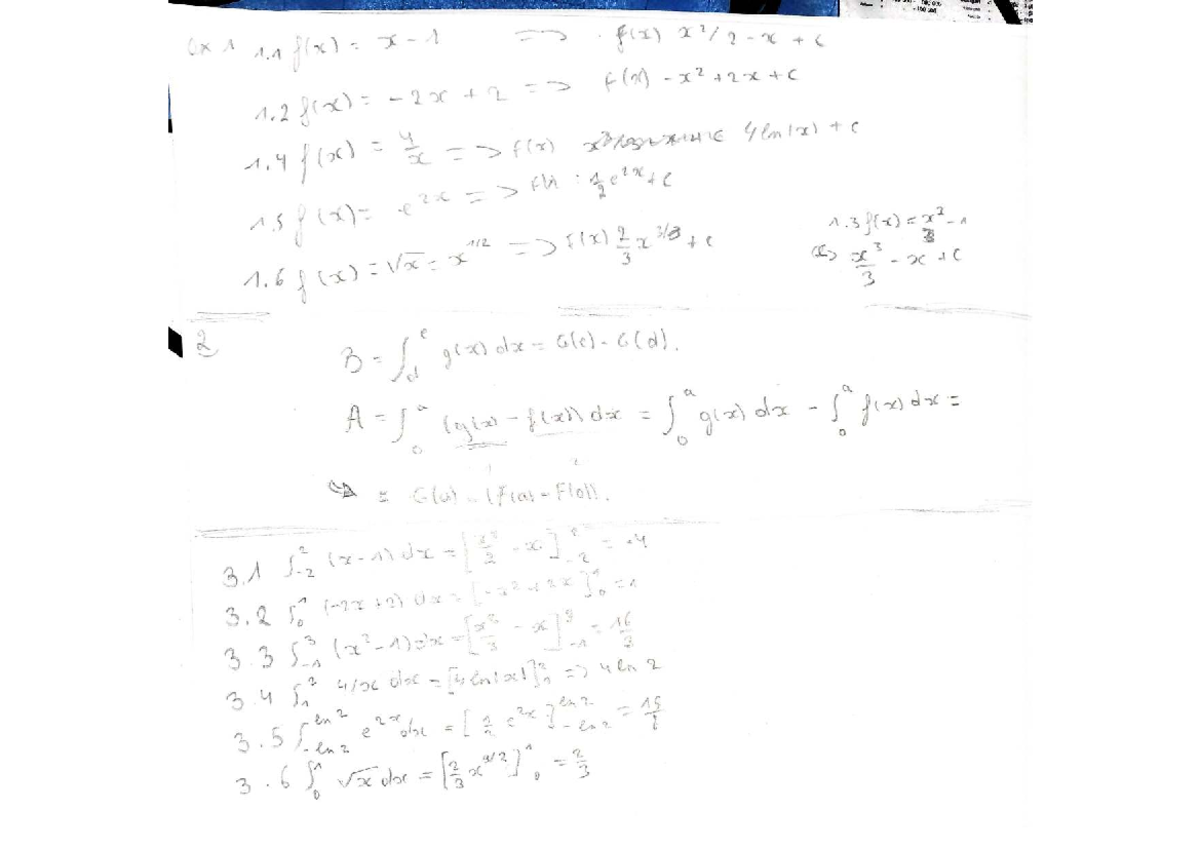 Ex 1 1.1 f(x) = x - 1 => f(x) x²/2 - x + c
1.2 f(x) = -2x + 2 => F(x) - x² + 2x + c
1.4 f(x) = 4/x => f(x) 4 ln(x) + c
1.5 f(x) = e^2x => F(x) : 1/2 e^2x + c
1.6 f(x) = √x = x^1/2 => F(x) 2/3 x^3/2 + c
1.3 f(x) = x² - 1
x³/3 - x + c
2
B = ∫_d^e g(x) dx = G(e) - G(d).
A = ∫_0^a (g(x) - f(x)) dx = ∫_0^a g(x) dx - ∫_0^a f(x) dx =
= G(a) - (F(a) - F(0)).
3.1 ∫_-2^2 (x - 1) dx = [x²/2 - x]_-2^2 = -4
3.2 ∫_0^1 (-2x + 2) dx = [-x² + 2x]_0^1 = 1
3.3 ∫_-1^3 (x² - 1) dx = [x³/3 - x]_-1^3 = 16/3
3.4 ∫_1^2 4/x dx = [4 ln|x|]_1^2 => 4 ln 2
3.5 ∫_-ln 2^ln 2 e^2x dx = [1/2 e^2x]_-ln 2^ln 2 = 15/8
3.6 ∫_0^1 √x dx = [2/3 x^3/2]_0^1 = 2/3